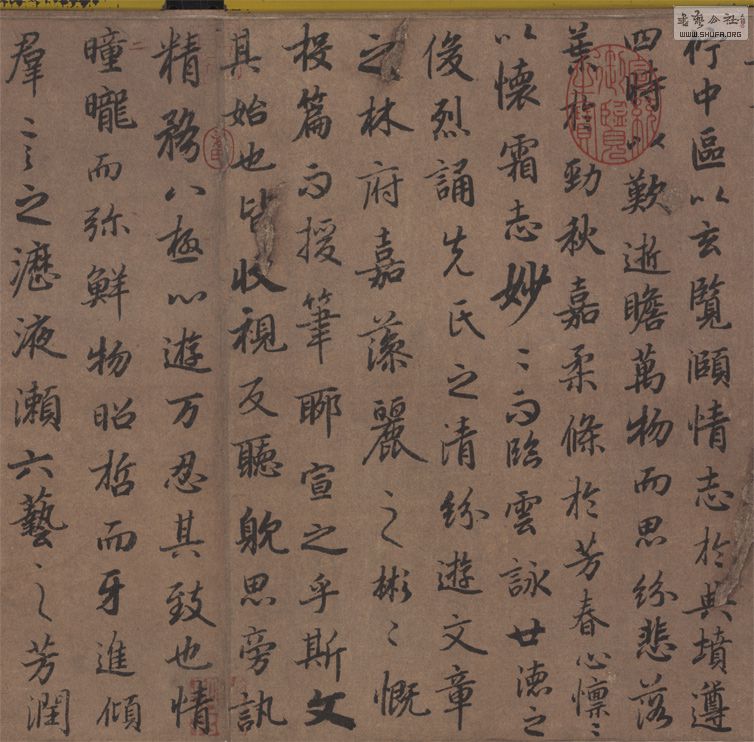 佇中區以玄覽頤情志於典墳遵
四時以歎逝瞻萬物而思紛悲落
葉於勁秋嘉柔條於芳春心懍〻
以懷霜志妙〻而臨雲詠世德之
俊烈誦先民之清紛遊文章
之林府嘉藻麗之彬〻慨
投篇而援筆聊宣之乎斯文
其始也皆收視反聽躭思旁訊
精務八極心遊万忍其致也情
曈曨而弥鮮物昭晢而牙進傾
羣言之瀝液漱六藝之芳潤
書藝公社
WWW.SHUFA.ORG